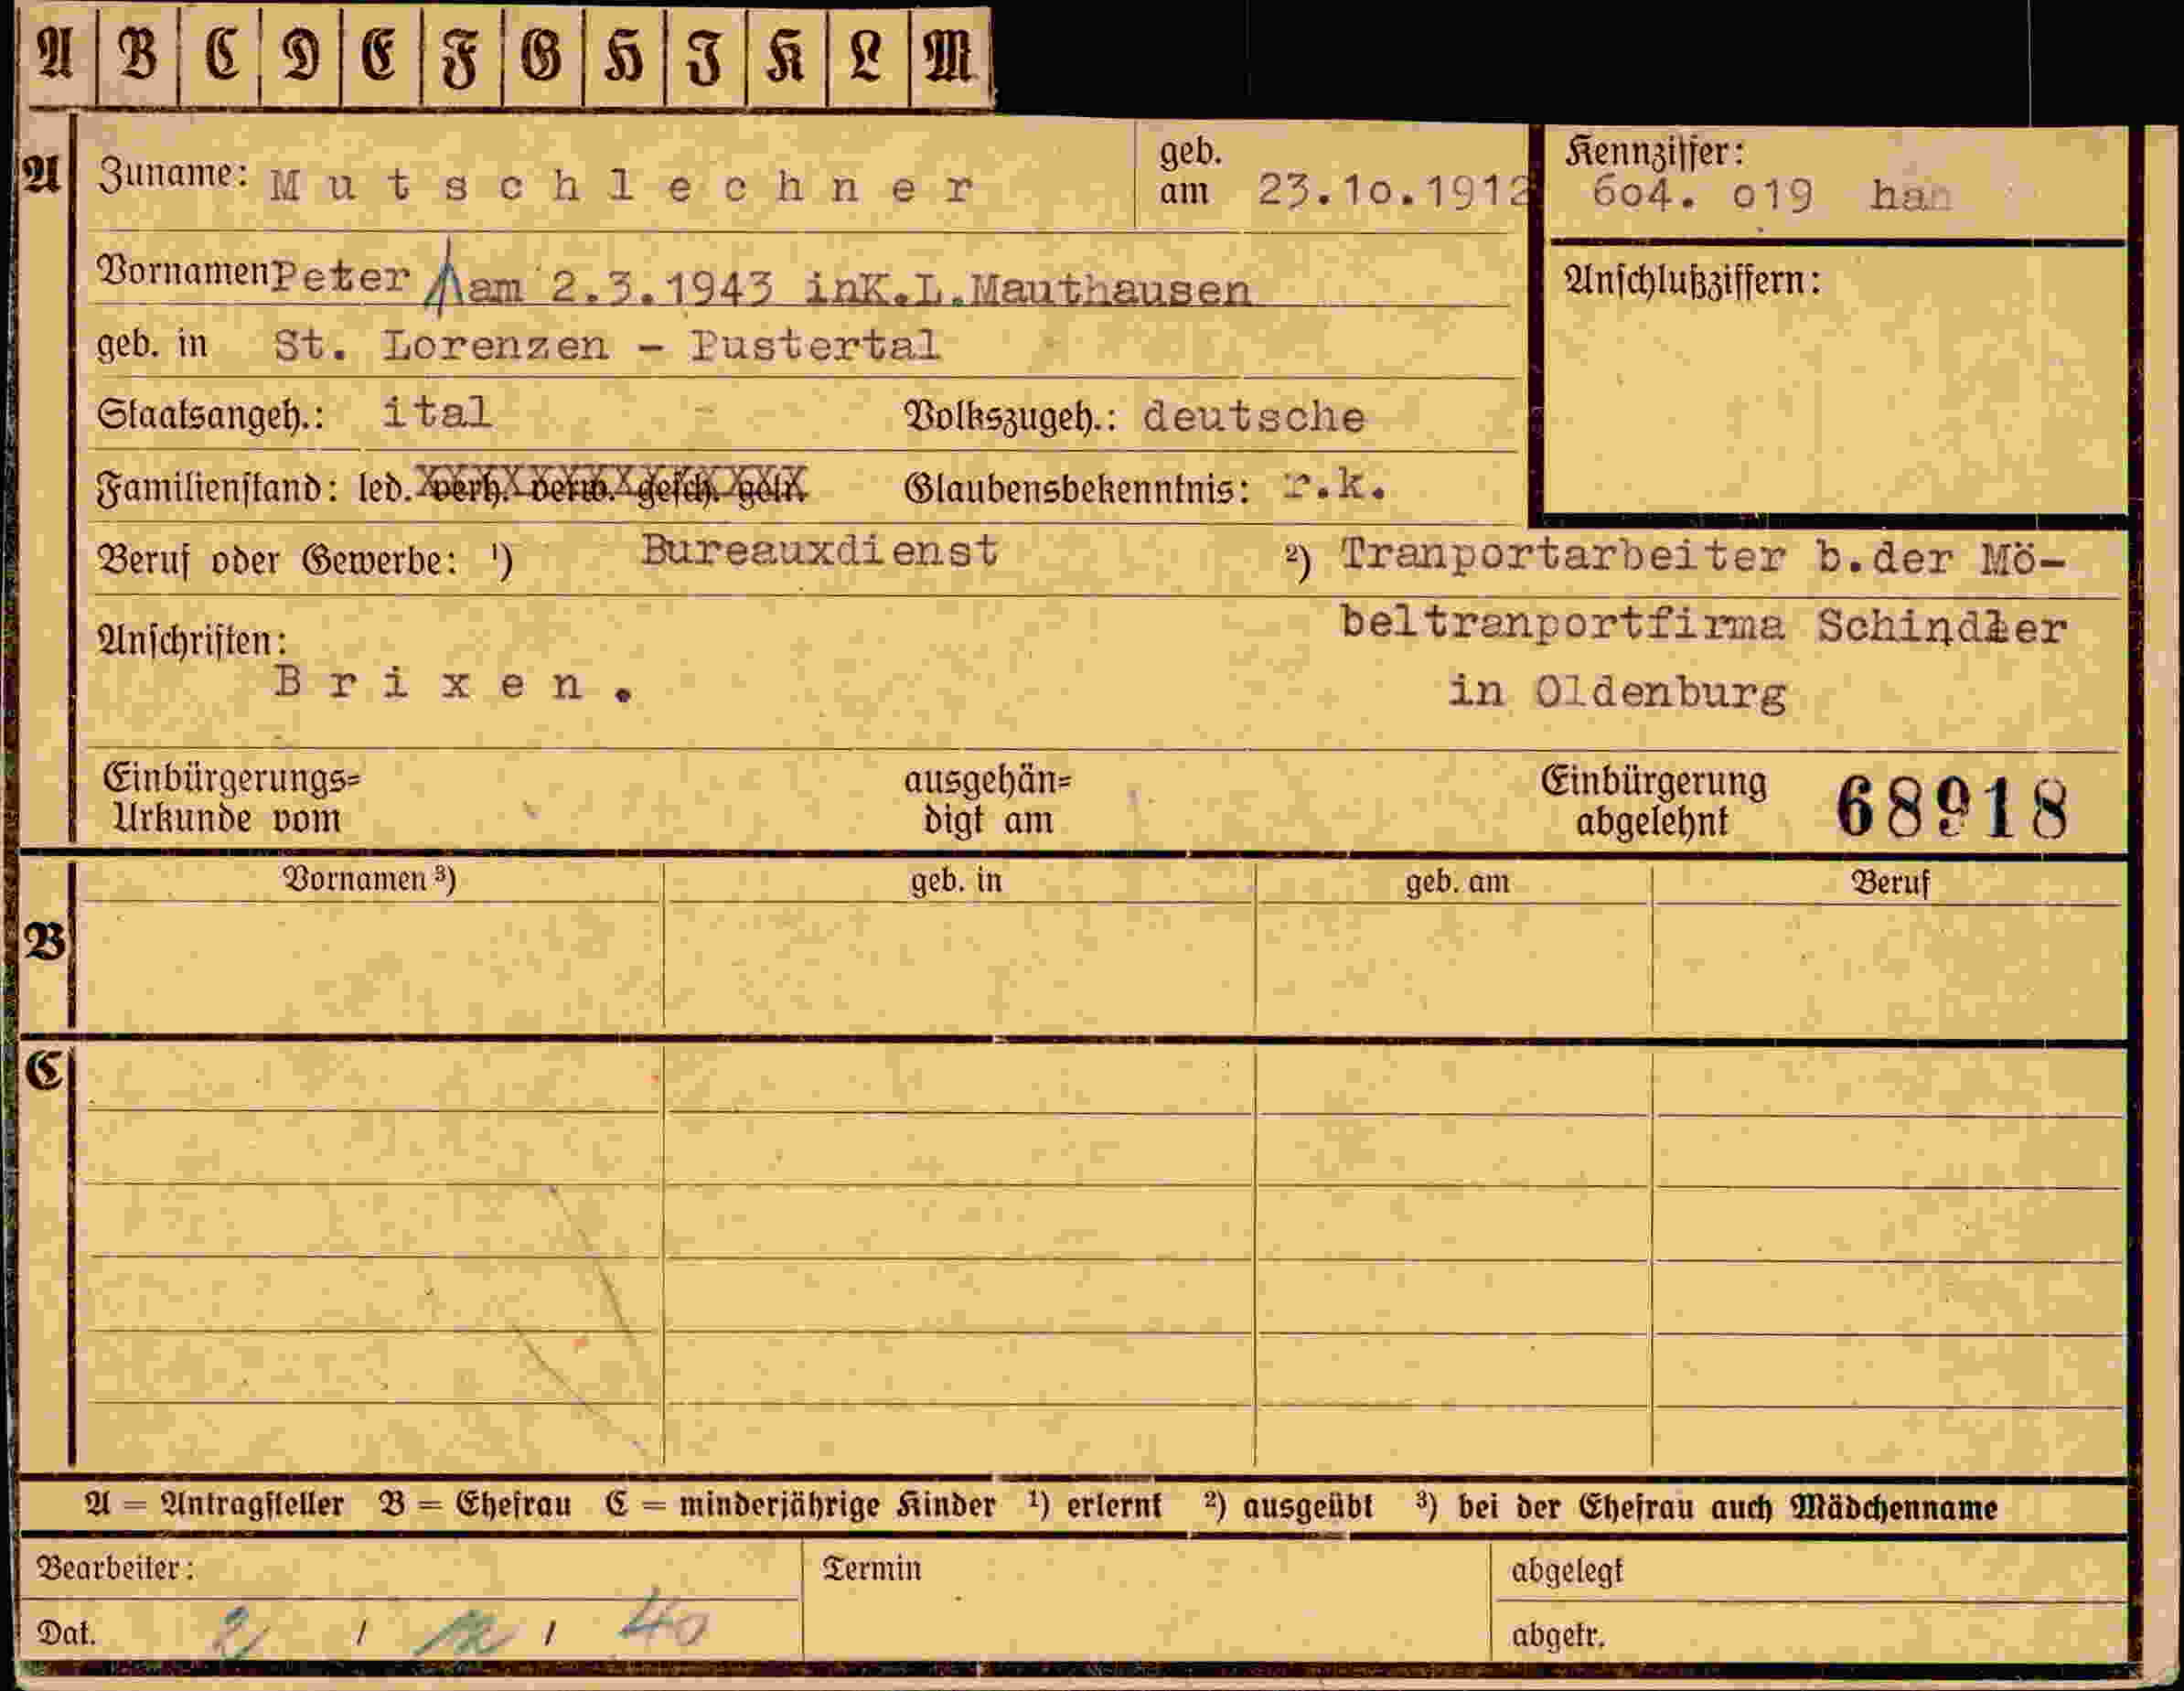 A B C D E F G H I K L M
A Zuname: Mutschlechner geb. am 23.10.1912 Kennziffer: 604. 019 han
Vornamen Peter am 2.3.1943 inK.L.Mauthausen Anschlußziffern:
geb. in St. Lorenzen - Pustertal
Staatsangeh.: ital Volkszugeh.: deutsche
Familienstand: led. verh. verw. gesch. Glaubensbekenntnis: r.k.
Beruf oder Gewerbe: ¹) Bureauxdienst ²) Tranportarbeiter b.der Mö-
beltranportfirma Schindler
Anschriften:
Brixen. in Oldenburg
Einbürgerungs= ausgehän= Einbürgerung 68918
Urkunde vom digt am abgelehnt
Vornamen ³) geb. in geb. am Beruf
B
C
A = Antragsteller B = Ehefrau C = minderjährige Kinder ¹) erlernt ²) ausgeübt ³) bei der Ehefrau auch Mädchenname
Bearbeiter: Termin abgelegt
Dat. 2 / 12 / 40 abgetr.